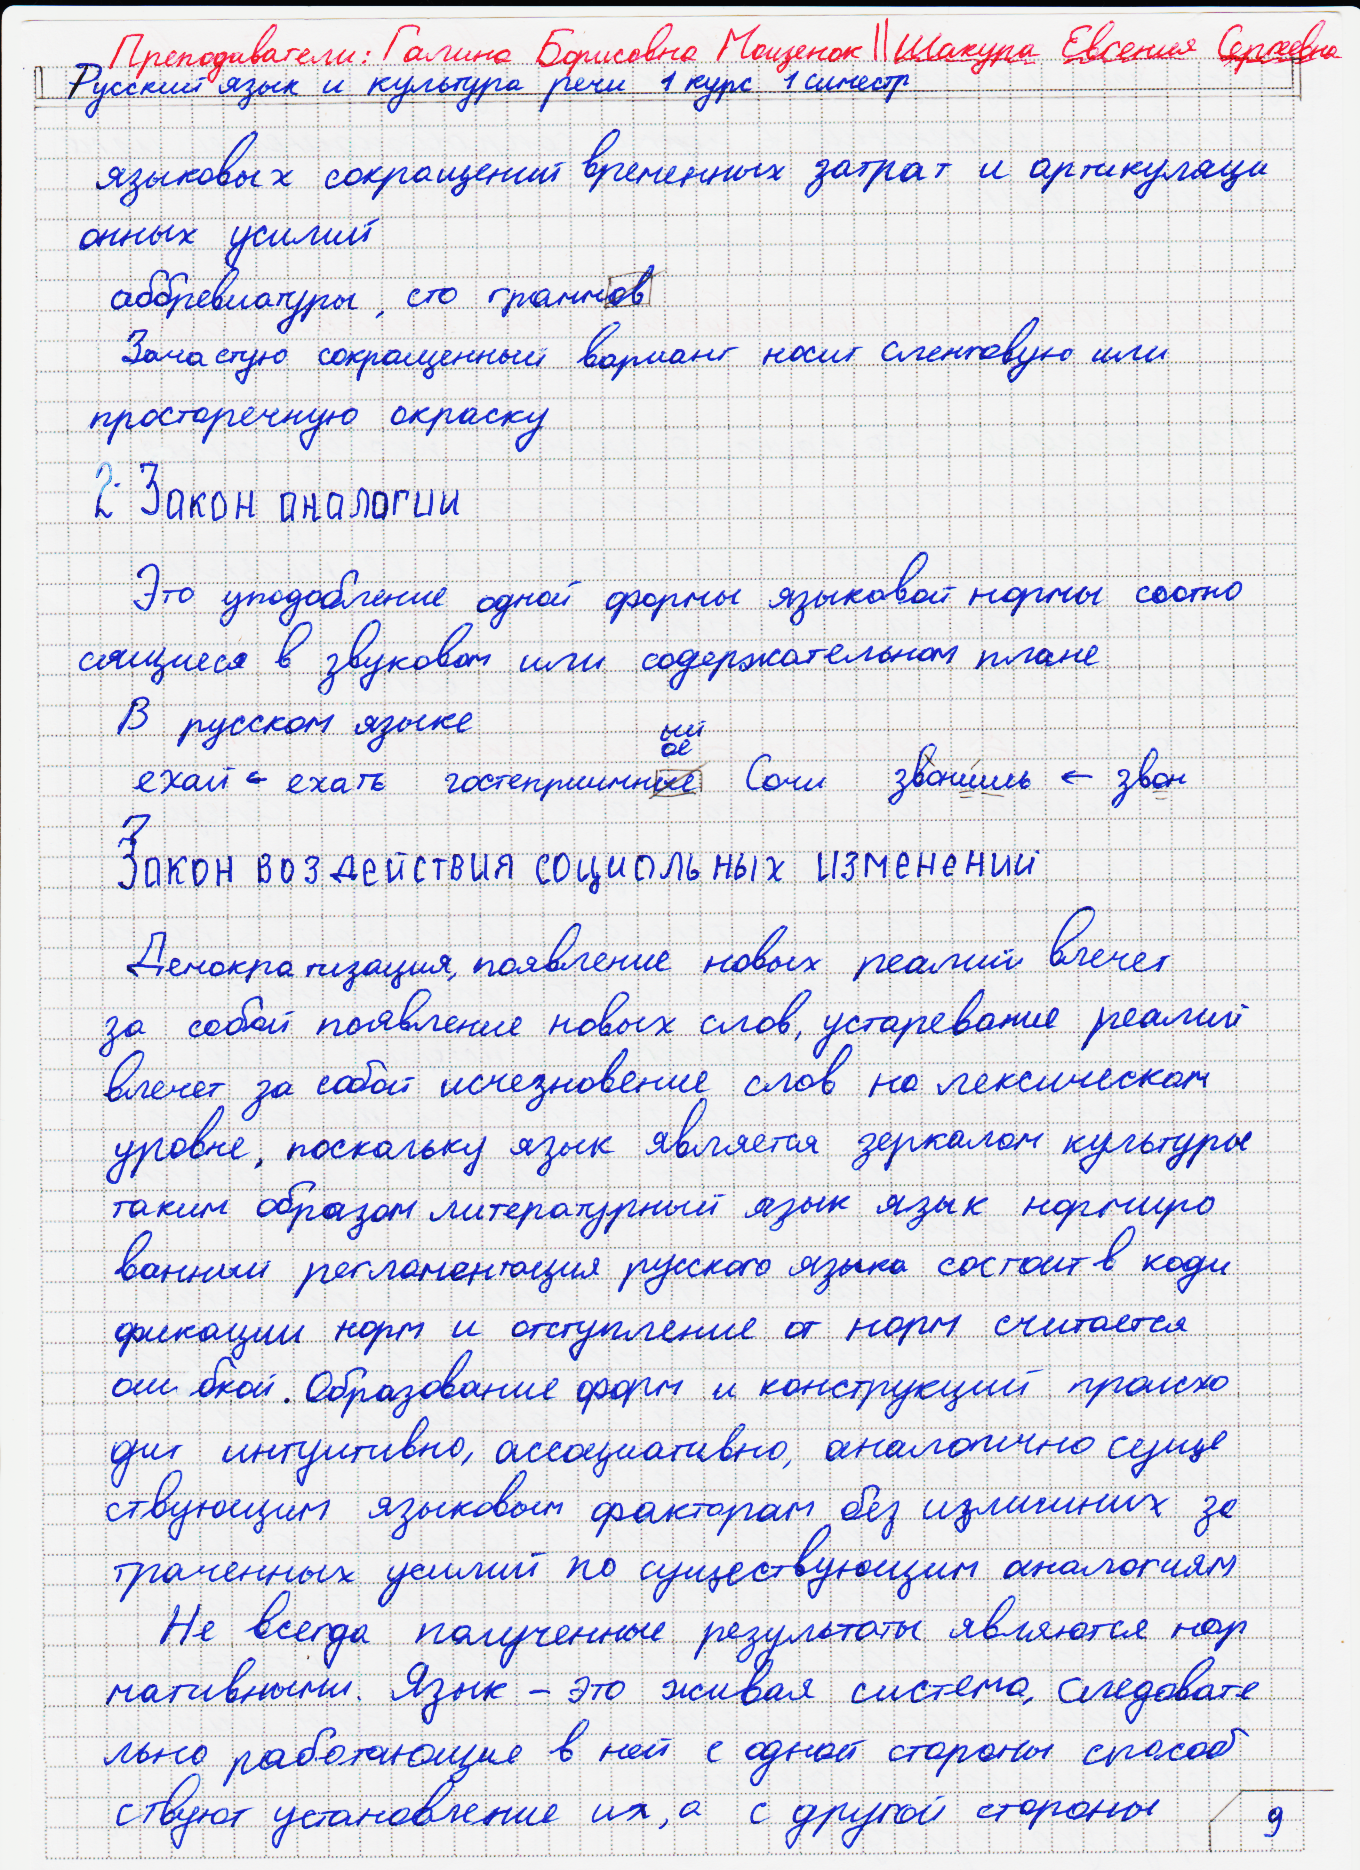 Преподаватели: Галина Борисовна Мощенок || Шакура Евгения Сергеевна
Русский язык и культура речи 1 курс 1 симестр
языковых сокращений временных затрат и артикуляци
онных усилий
аббревиатуры, сто граммов
Зачастую сокращенный вариант носит сленговую или
просторечную окраску
2. Закон аналогии
Это уподобление одной формы языковой нормы соотно
сящиеся в звуковом или содержательном плане
В русском языке
ый
ое
ехай ← ехать гостеприимные Сочи звонишь ← звон
3
Закон воздействия социольных изменений
Демократизация, появление новых реалий влечет
за собой появление новых слов, устаревание реалий
влечет за собой исчезновение слов на лексическом
уровне, поскольку язык является зеркалом культуры
таким образом литературный язык язык нормиро
ванный регламентация русского языка состоит в коди
фикации норм и отступление от норм считается
ошибкой. Образование форм и конструкций происхо
дит интуитивно, ассоциативно, аналогично суще
ствующим языковым факторам без излишних за
траченных усилий по существующим аналогиям
Не всегда полученные результаты являются нор
мативными. Язык – это живая система, следовате
льно работающие в ней с одной стороны способ
ствуют установление их, а с другой стороны
9